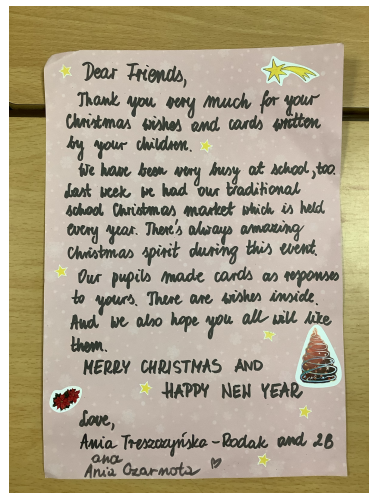 Dear Friends,
Thank you very much for your
Christmas wishes and cards written
by your children.
We have been very busy at school, too.
Last week we had our traditional
school Christmas market which is held
every year. There's always amazing
Christmas spirit during this event.
Our pupils made cards as reponses
to yours. There are wishes inside.
And we also hope you all will like
them.
MERRY CHRISTMAS AND
HAPPY NEW YEAR
Love,
Ania Treszczyńska-Rodak and 2B
and
Ania Czarnota